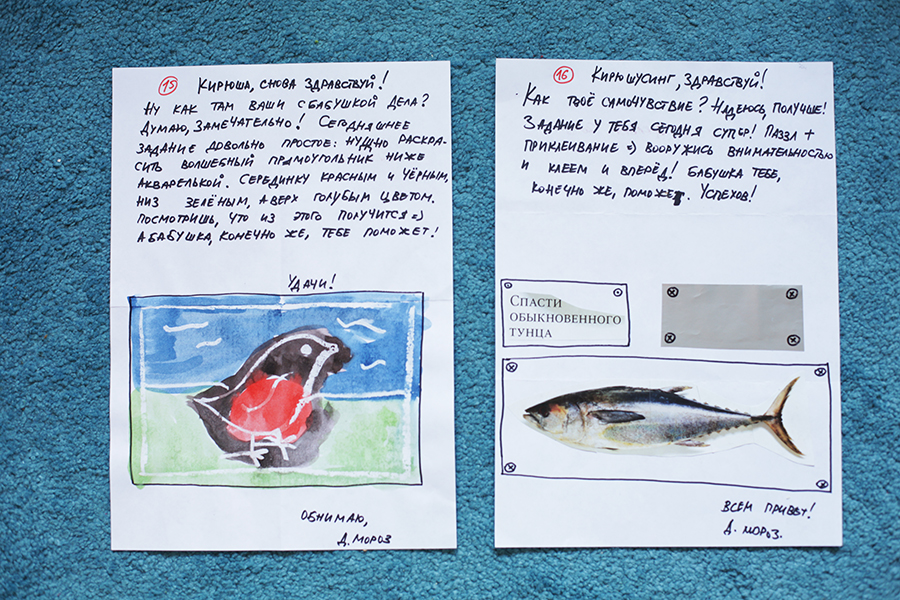 15 Кирюша, снова здравствуй!
Ну как там ваши с бабушкой дела?
Думаю, замечательно! Сегодняшнее
задание довольно простое: нужно раскра-
сить волшебный прямоугольник ниже
акварелькой. Серединку красным и чёрным,
низ зелёным, а верх голубым цветом.
Посмотришь, что из этого получится =)
А бабушка, конечно же, тебе поможет!
Удачи!
Обнимаю,
Д. Мороз
16 Кирюшусинг, здравствуй!
Как твоё самочувствие? Надеюсь, получше!
Задание у тебя сегодня супер! Паззл +
приклеивание =) Вооружись внимательностью
и клеем и вперёд! Бабушка тебе,
конечно же, поможет. Успехов!
Спасти
обыкновенного
тунца
Всем привет!
Д. Мороз.